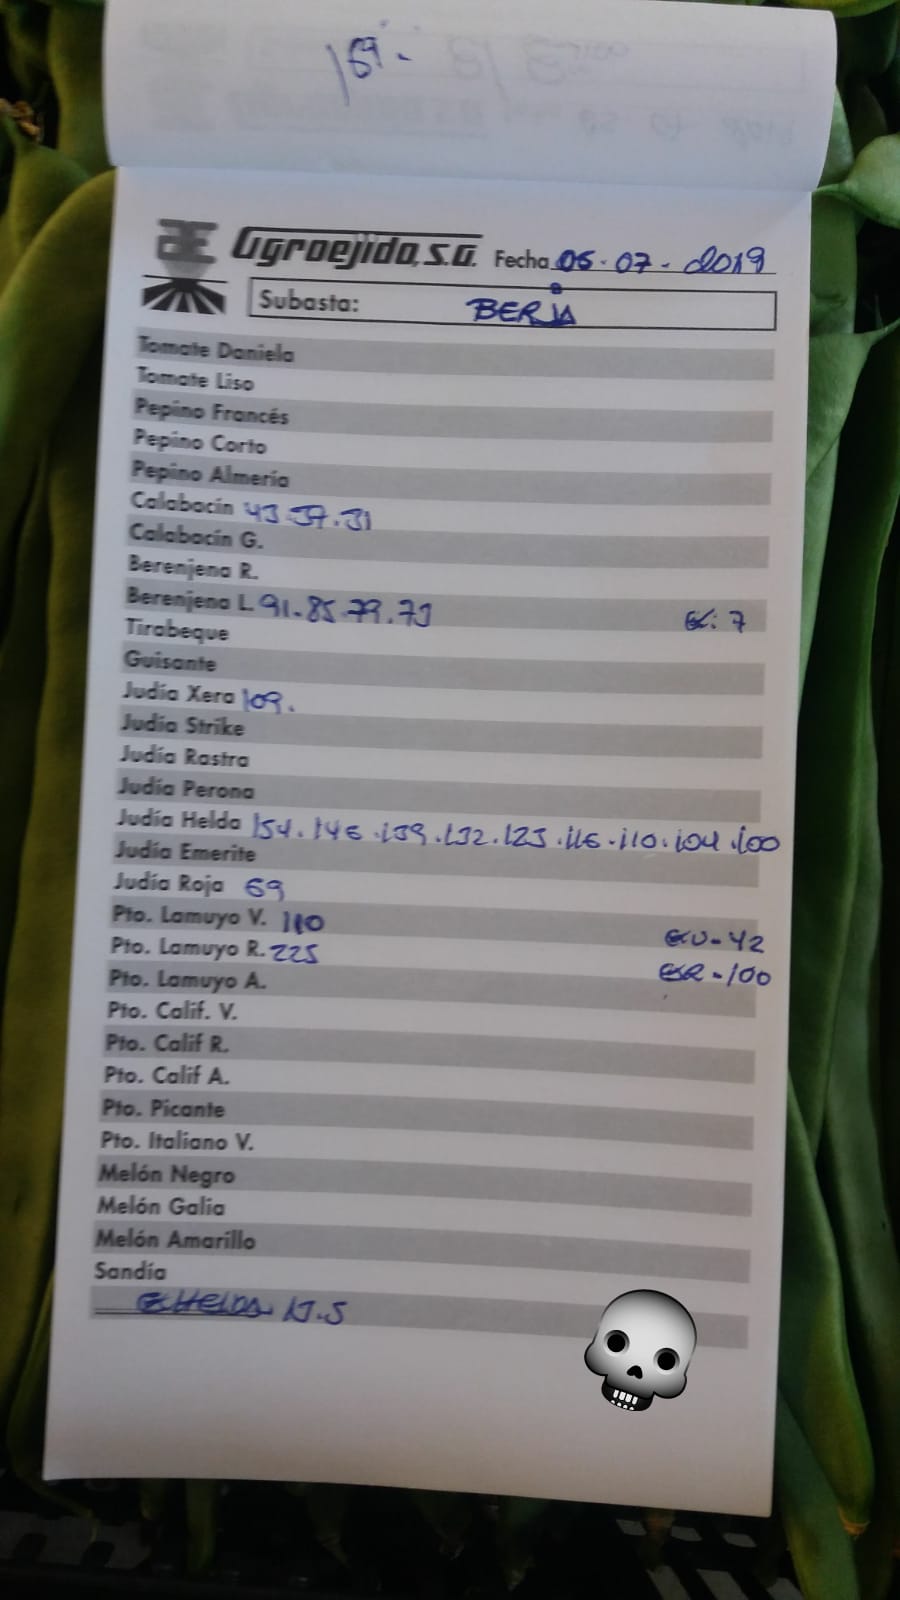 169.
Agroejido, S.A. Fecha 06-07-2019
Subasta: BERJA
Tomate Daniela
Tomate Liso
Pepino Francés
Pepino Corto
Pepino Almería
Calabacín 43.37.31
Calabacín G.
Berenjena R.
Berenjena L. 91.85.79.73 EX: 7
Tirabeque
Guisante
Judía Xera 109.
Judía Strike
Judía Rastra
Judía Perona
Judía Helda 154.146.139.132.123.116.110.104.100
Judía Emerite
Judía Roja 69
Pto. Lamuyo V. 110 EXV-42
Pto. Lamuyo R. 225 EXR-100
Pto. Lamuyo A.
Pto. Calif. V.
Pto. Calif R.
Pto. Calif A.
Pto. Picante
Pto. Italiano V.
Melón Negro
Melón Galia
Melón Amarillo
Sandía
HELDA